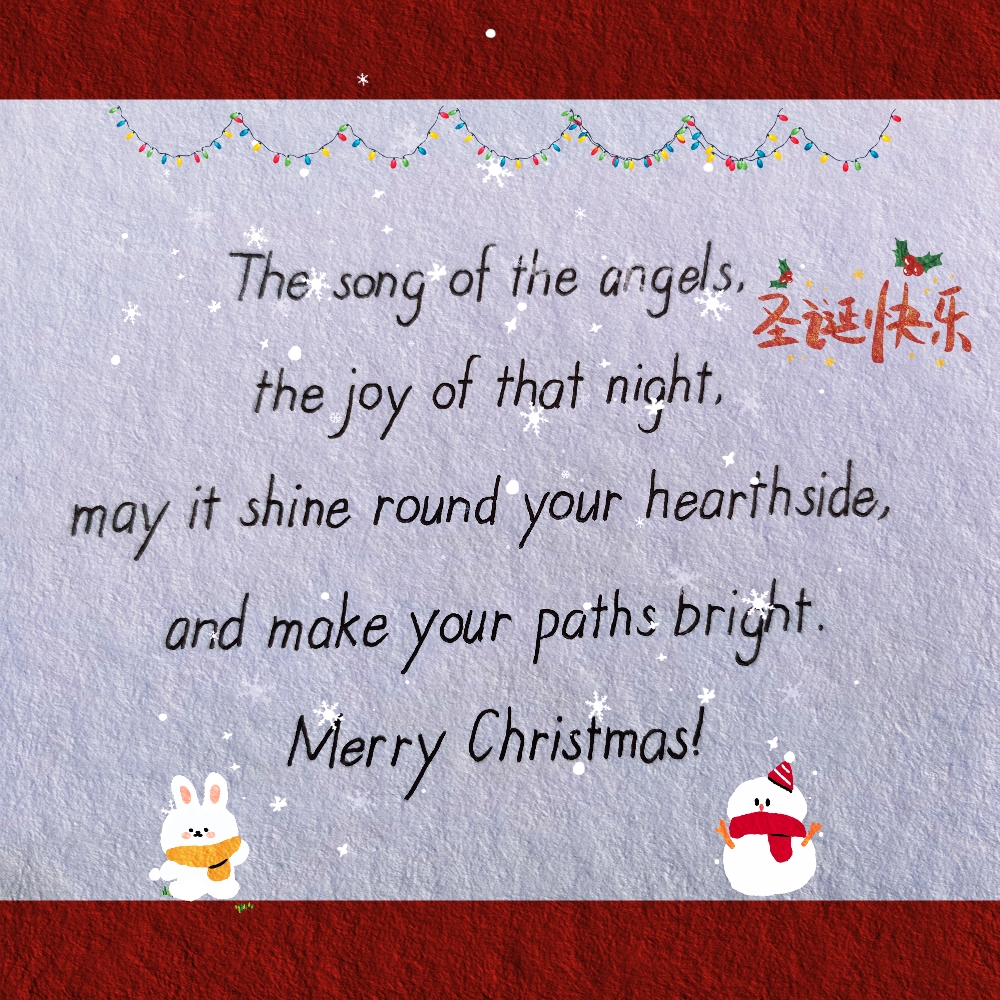 The song of the angels,
圣诞快乐
the joy of that night,
may it shine round your hearthside,
and make your paths bright.
Merry Christmas!